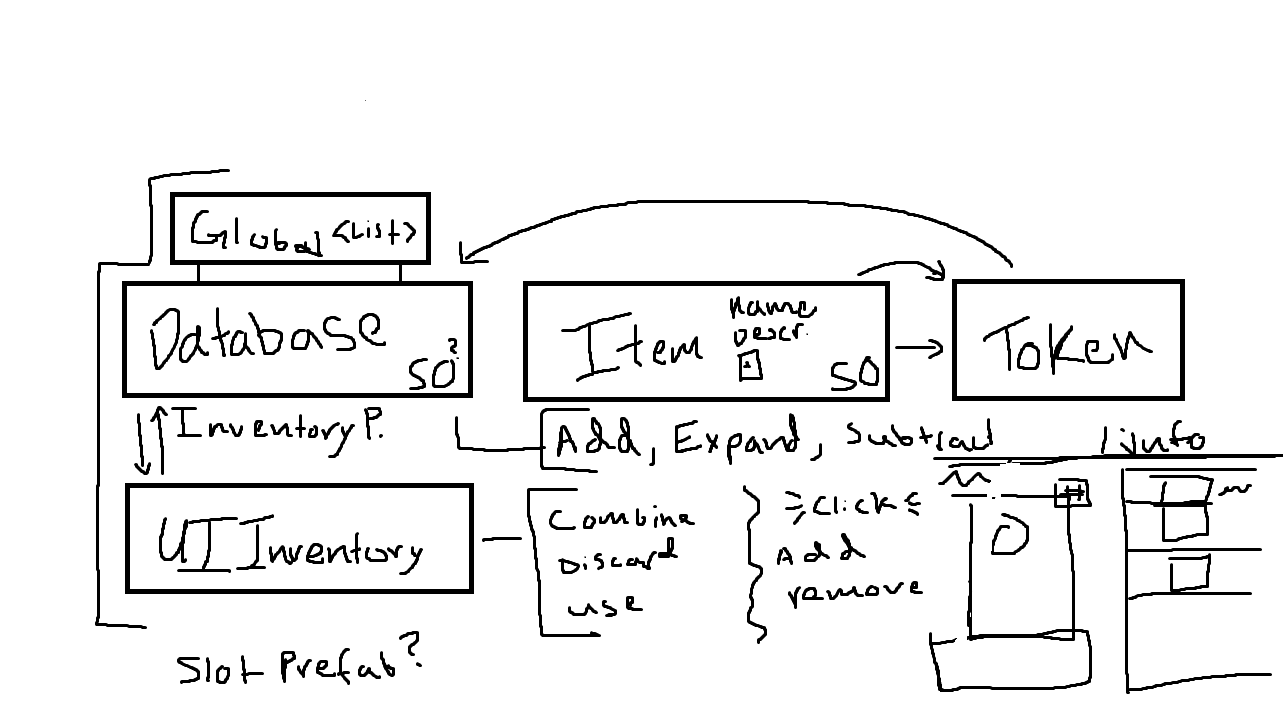 Global <List>
Database
SO?
Item
name
Descr.
SO
Token
Inventory P.
Add, Expand, Subtract
UI Inventory
Combine
Discard
use
Click
Add
remove
#
Slot Prefab?